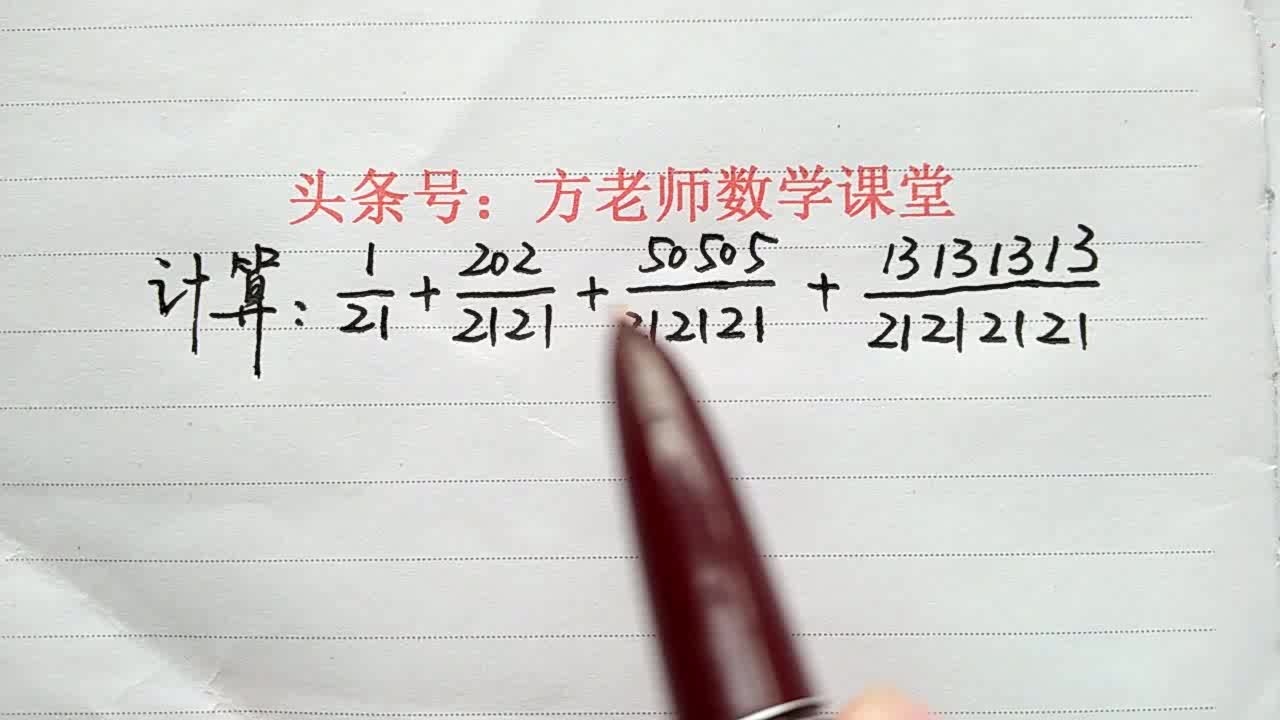 头条号：方老师数学课堂
计算：1/21 + 202/2121 + 50505/212121 + 13131313/21212121